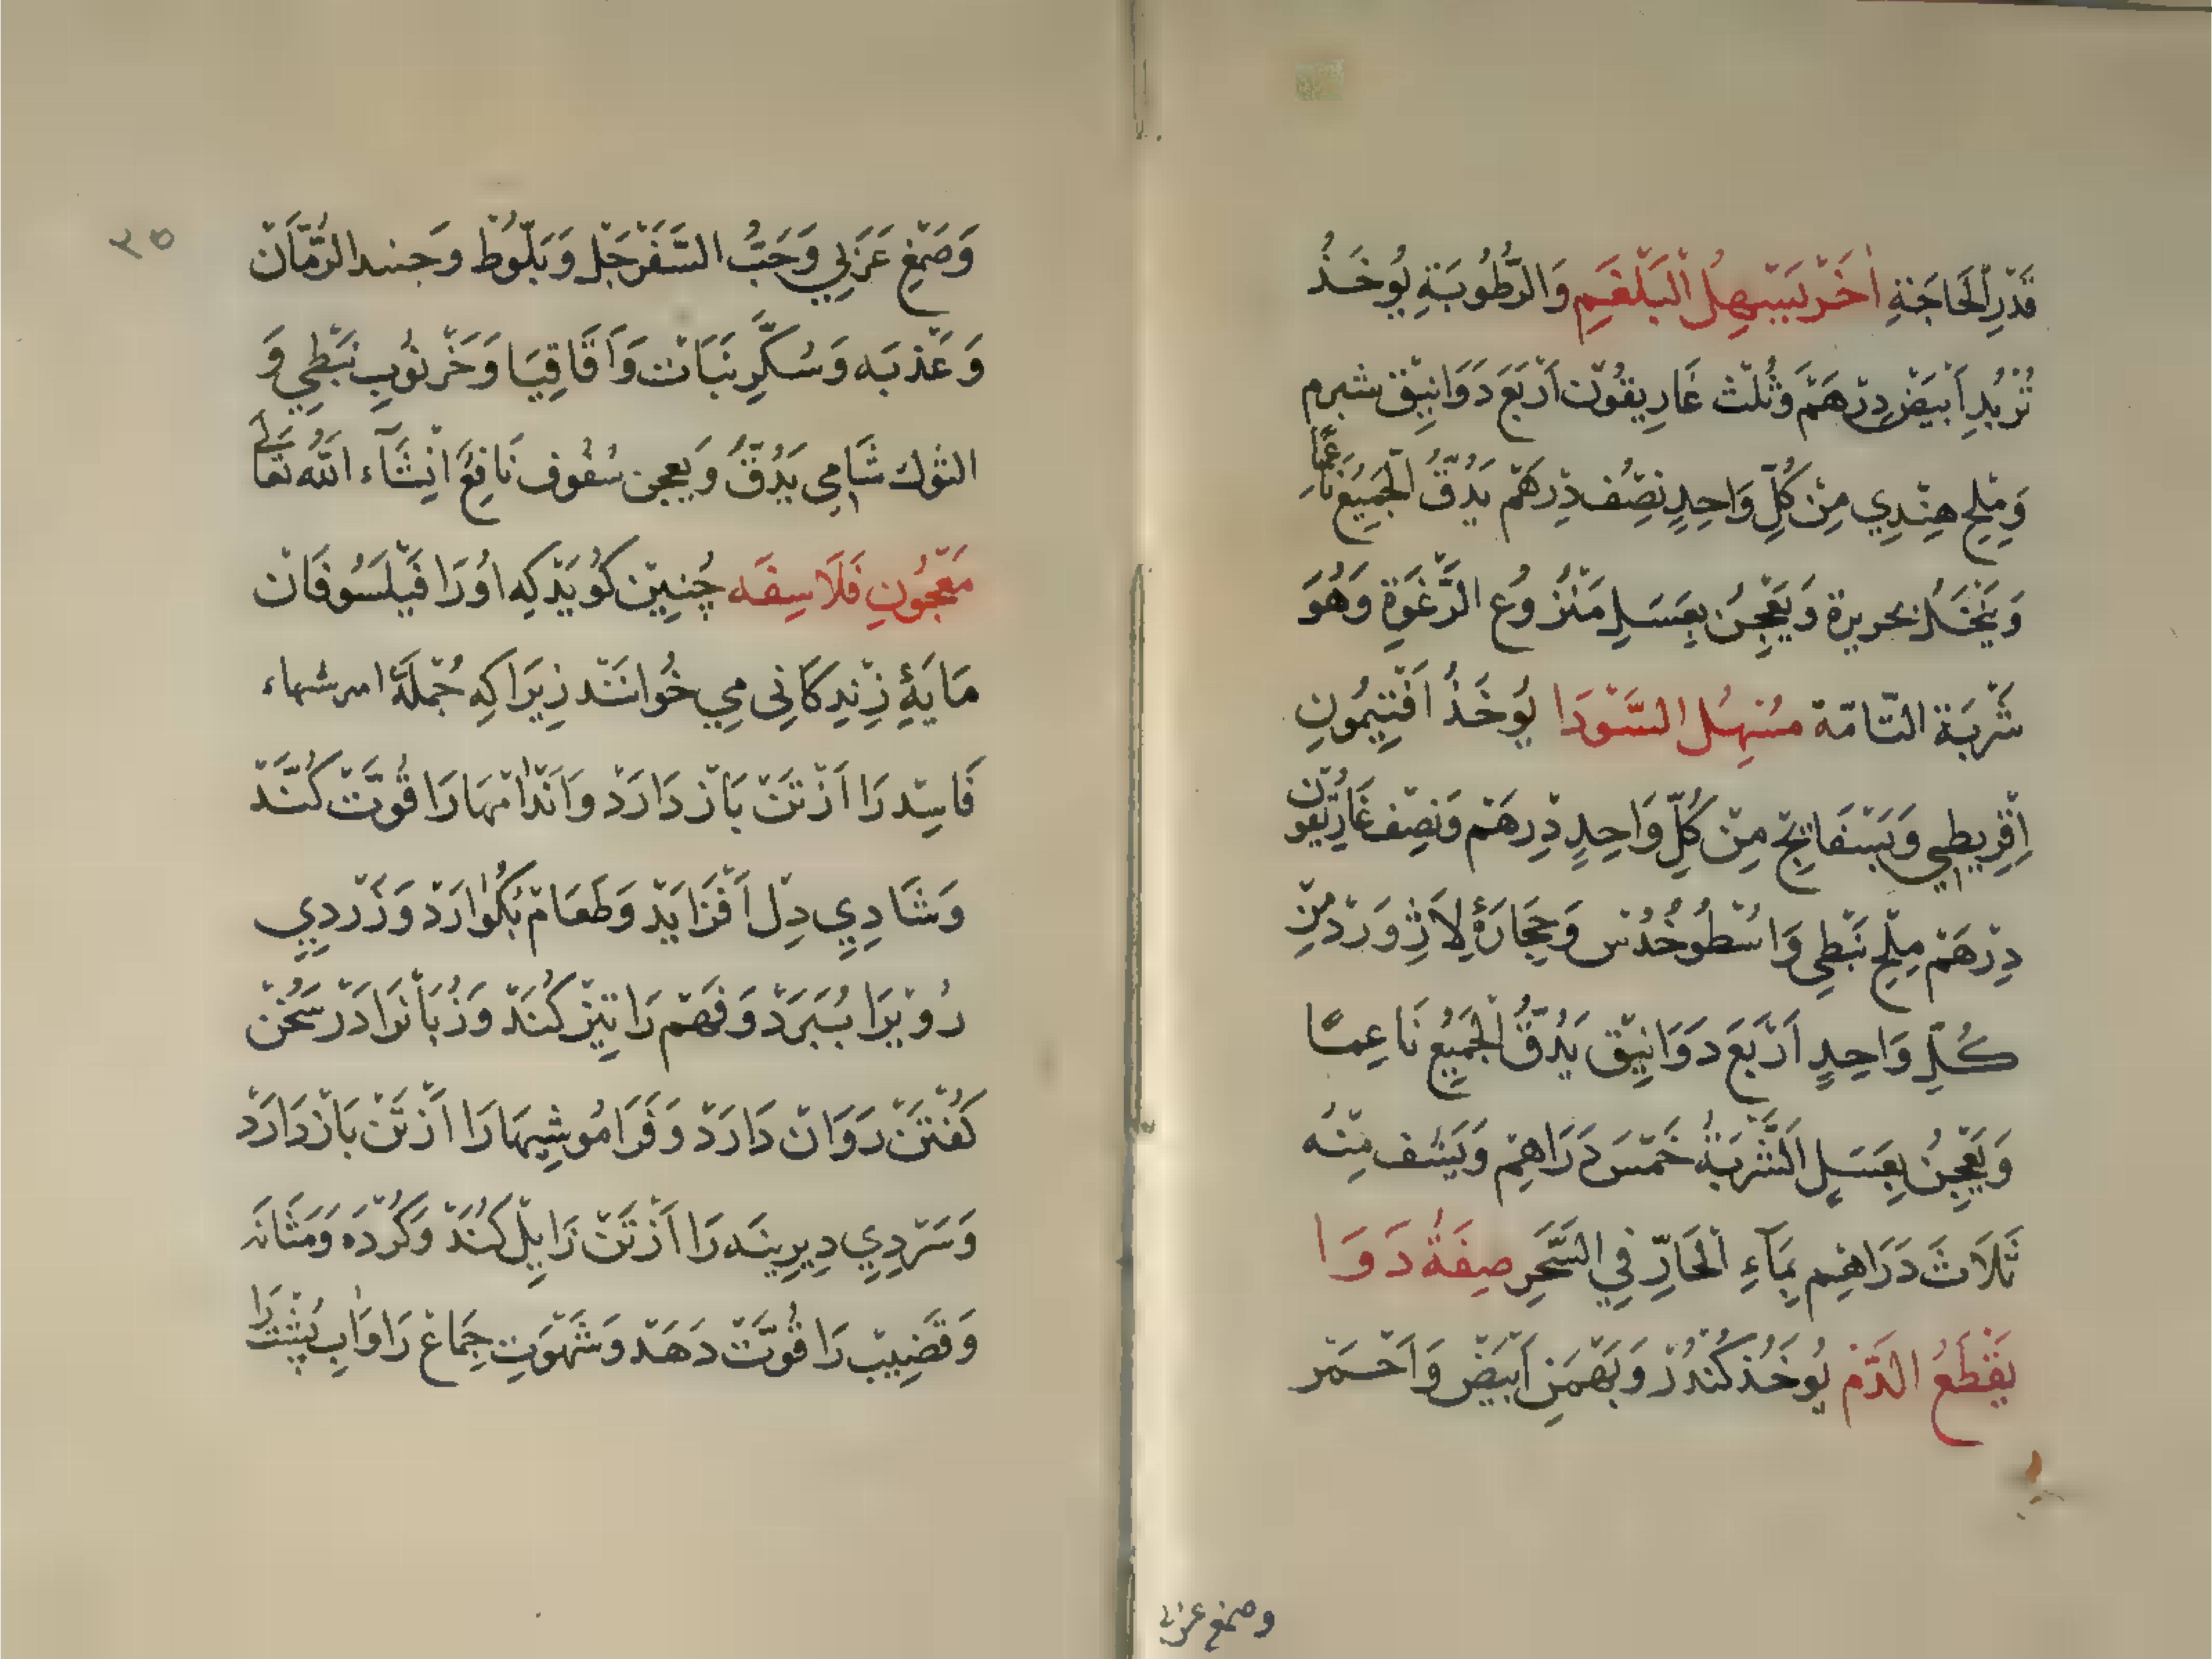 قَدْرِ الْحَاجَةِ اٰخَرْ يَسْهِلُ الْبَلْغَمِ وَالرَّطُوبَةِ يُوخَذُ
تُرْبُدِ اَبْيَضْ دِرْهَمْ وَثُلْث غَارِيقُوْن اَرْبَعَ دَوَانِيْق شبرم
وَمِلْحِ هِنْدِي مِنْ كُلِّ وَاحِدٍ نِصْف دِرْهَمْ يَدُقُّ الْجَمِيْعْ نَاعِمًا
وَيَنْخَلْ بحريرة وَيَعْجِنُ بِعَسَلِ مَنْزُوع الرَّغْوَةِ وَهُوَ
شَرْبَة التَّامَّة مُسْهِلُ السَّوْدَا يُوخَذُ اَفْتِيمُونِ
اِقْرِيطِي وَبَسْفَايِجْ مِنْ كُلِّ وَاحِدٍ دِرْهَمْ وَنِصْف غَارِيْقُوْن
دِرْهَمْ مِلْحِ نَبْطِي وَاسْطُوخُدُسْ وَحِجَارَةْ لَازْوَرْد مِنْ
كُلِّ وَاحِدٍ اَرْبَعَ دَوَانِيْق يَدُقُّ الْجَمِيْع نَاعِمًا
وَيَعْجِنُ بِعَسَلٍ اَلشَّرْبَةُ خَمْسَ دَرَاهِمْ وَيَسُف مِنْه
ثَلَاثَ دَرَاهِم بِمَآءِ الْحَارِّ فِي السَّحَرِ صِفَةُ دَوَا
يَقْطَعُ الدَّمْ يُوخَذُ كُنْدُرْ وَبَهْمَنِ اَبْيَضْ وَاَحْمَرْ
وصمغ عربي
٢٥
وَصَمْغِ عَرَبِي وَحَبُّ السَّفَرْجَلْ وَبَلُّوطْ وَجند الرُّمَّانْ
وَعَذبَه وَسُكَّرِ نَبَاتْ وَاَقَاقِيَا وَخَرْنُوْبِ نَبْطِي وَ
الثوك شَامِي يَدُقُّ وَيعجن سُفُوف نَافِعْ انِشَآء اللّٰه تَعَالَى
مَعْجُونِ فَلَاسِفَه چُنِيْن كُويَدْ كِه اُورَا فَيْلَسُوفَانْ
مَايَهٔ زِنْدِكَانِى مِي خُوانَنْد زِيرَا كِه جُمْلَهٔ امرشهاء
فَاسِد رَا اَزْ تَنْ بَازْ دَارَدْ وَاَنْدَامْهَارَا قُوَّتْ كُنَدْ
وَشَادِي دِلْ اَفْزَايَدْ وَطَعَامْ بُكُوَارَدْ وَزَرْدِي
رُوْيرَا بُبَرَدْ وَفَهْم رَا تِيْز كُنَدْ وَزُبَانْرَا دَرْ سَخُنْ
كُفْتَنْ رَوَانْ دَارَدْ وَفَرَامُوشِيهَارَا اَزْ تَنْ بَازْ دَارَدْ
وَسَرْدِي دِيرِينَه رَا اَزْ تَنْ زَايِلْ كُنَدْ وَكُرْدَه وَمَثَانَه
وَقَضِيبْ رَا قُوَّتْ دَهَدْ وَشَهْوَتِ جِمَاعْ رَا وَابِ پُشْتْ رَا